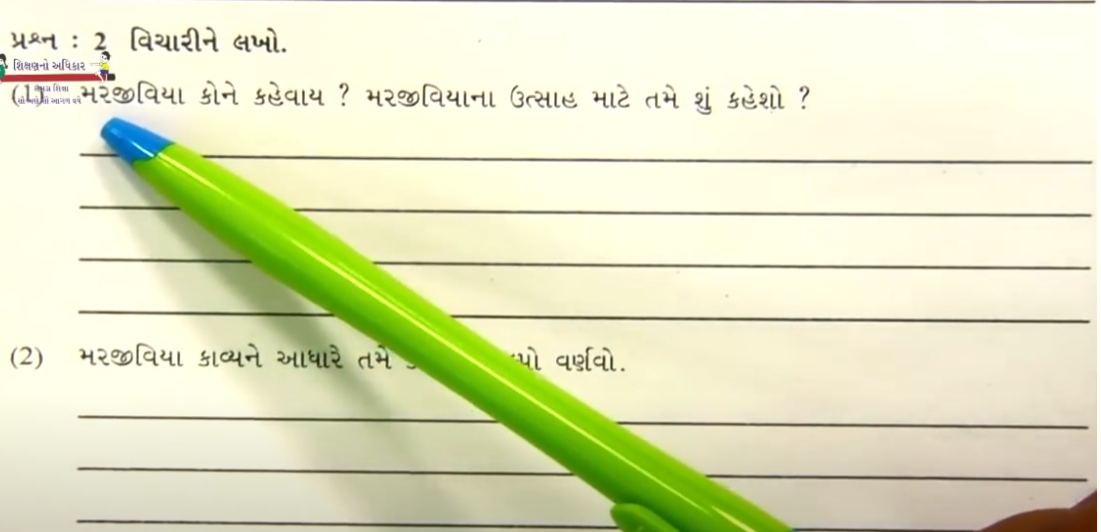 પ્રશ્ન : 2 વિચારીને લખો.
શિક્ષણનો અધિકાર
(1) મરજીવિયા કોને કહેવાય ? મરજીવિયાના ઉત્સાહ માટે તમે શું કહેશો ?
(2) મરજીવિયા કાવ્યને આધારે તમે વર્ણવો.